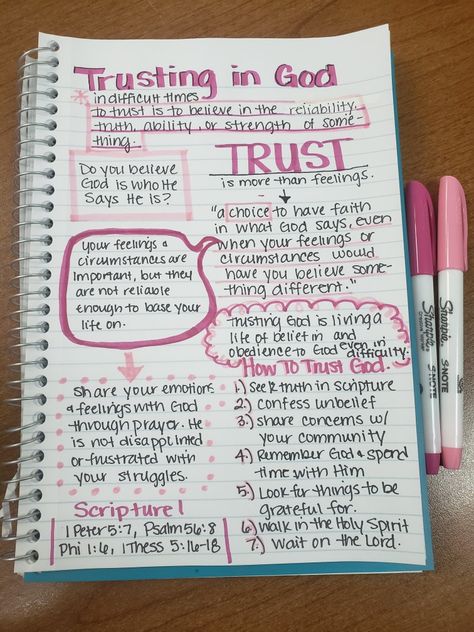 Trusting in God
in difficult times
To trust is to believe in the reliability,
truth, ability, or strength of some-
thing.
Do you believe
God is who He
says He is?
TRUST
is more than feelings.
"a choice to have faith
in what God says, even
when your feelings or
circumstances would
have you believe some-
thing different."
Your feelings &
circumstances are
important, but they
are not reliable
enough to base your
life on.
Trusting God is living a
life of belief in and
obedience to God even in
difficulty.
Share your emotions
& feelings with God
through prayer. He
is not disappointed
or frustrated with
your struggles.
How To Trust God.
1.) Seek truth in scripture
2.) Confess unbelief
3.) share concerns w/
your community
4.) Remember God & spend
time with Him
5.) Look for things to be
grateful for.
6.) Walk in the Holy Spirit
7.) Wait on the Lord.
Scripture
1 Peter 5:7, Psalm 56:8
Phil 1:6, 1 Thess 5:16-18
Sharpie
S·NOTE
Sharpie
S·NOTE